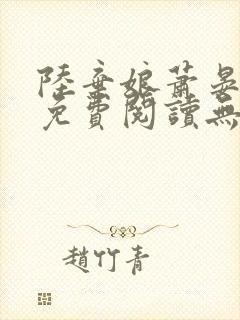 陸棄娘蕭晏
免費閱讀無
趙竹青